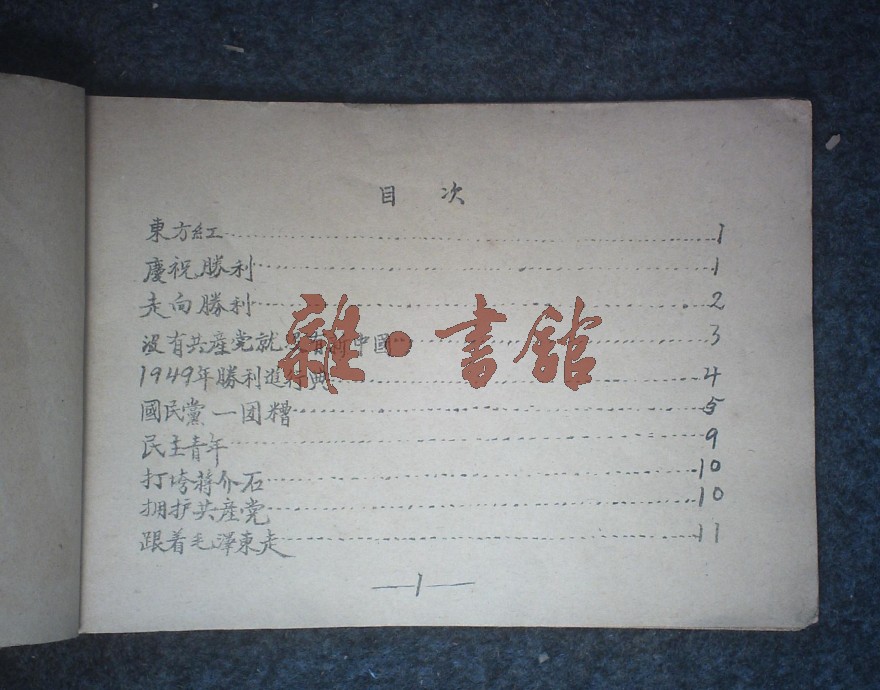 目 次
東方紅 1
慶祝勝利 1
走向勝利 2
没有共產党就没有新中國 3
1949年勝利進行曲 4
國民黨一团糟 5
民主青年 9
打垮蔣介石 10
拥护共產党 10
跟着毛澤東走 11
—1—
雜·書館